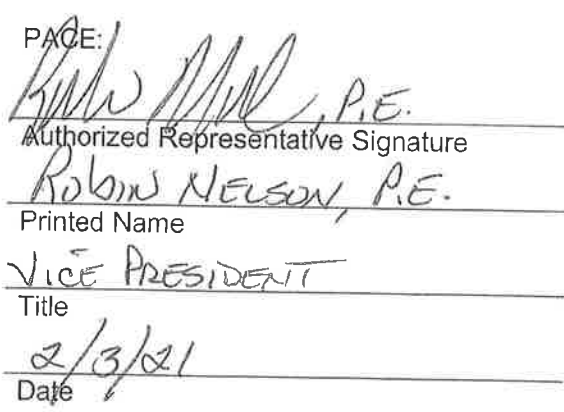 PACE:
, P.E.
Authorized Representative Signature
Robin Nelson, P.E.
Printed Name
Vice President
Title
2/3/21
Date